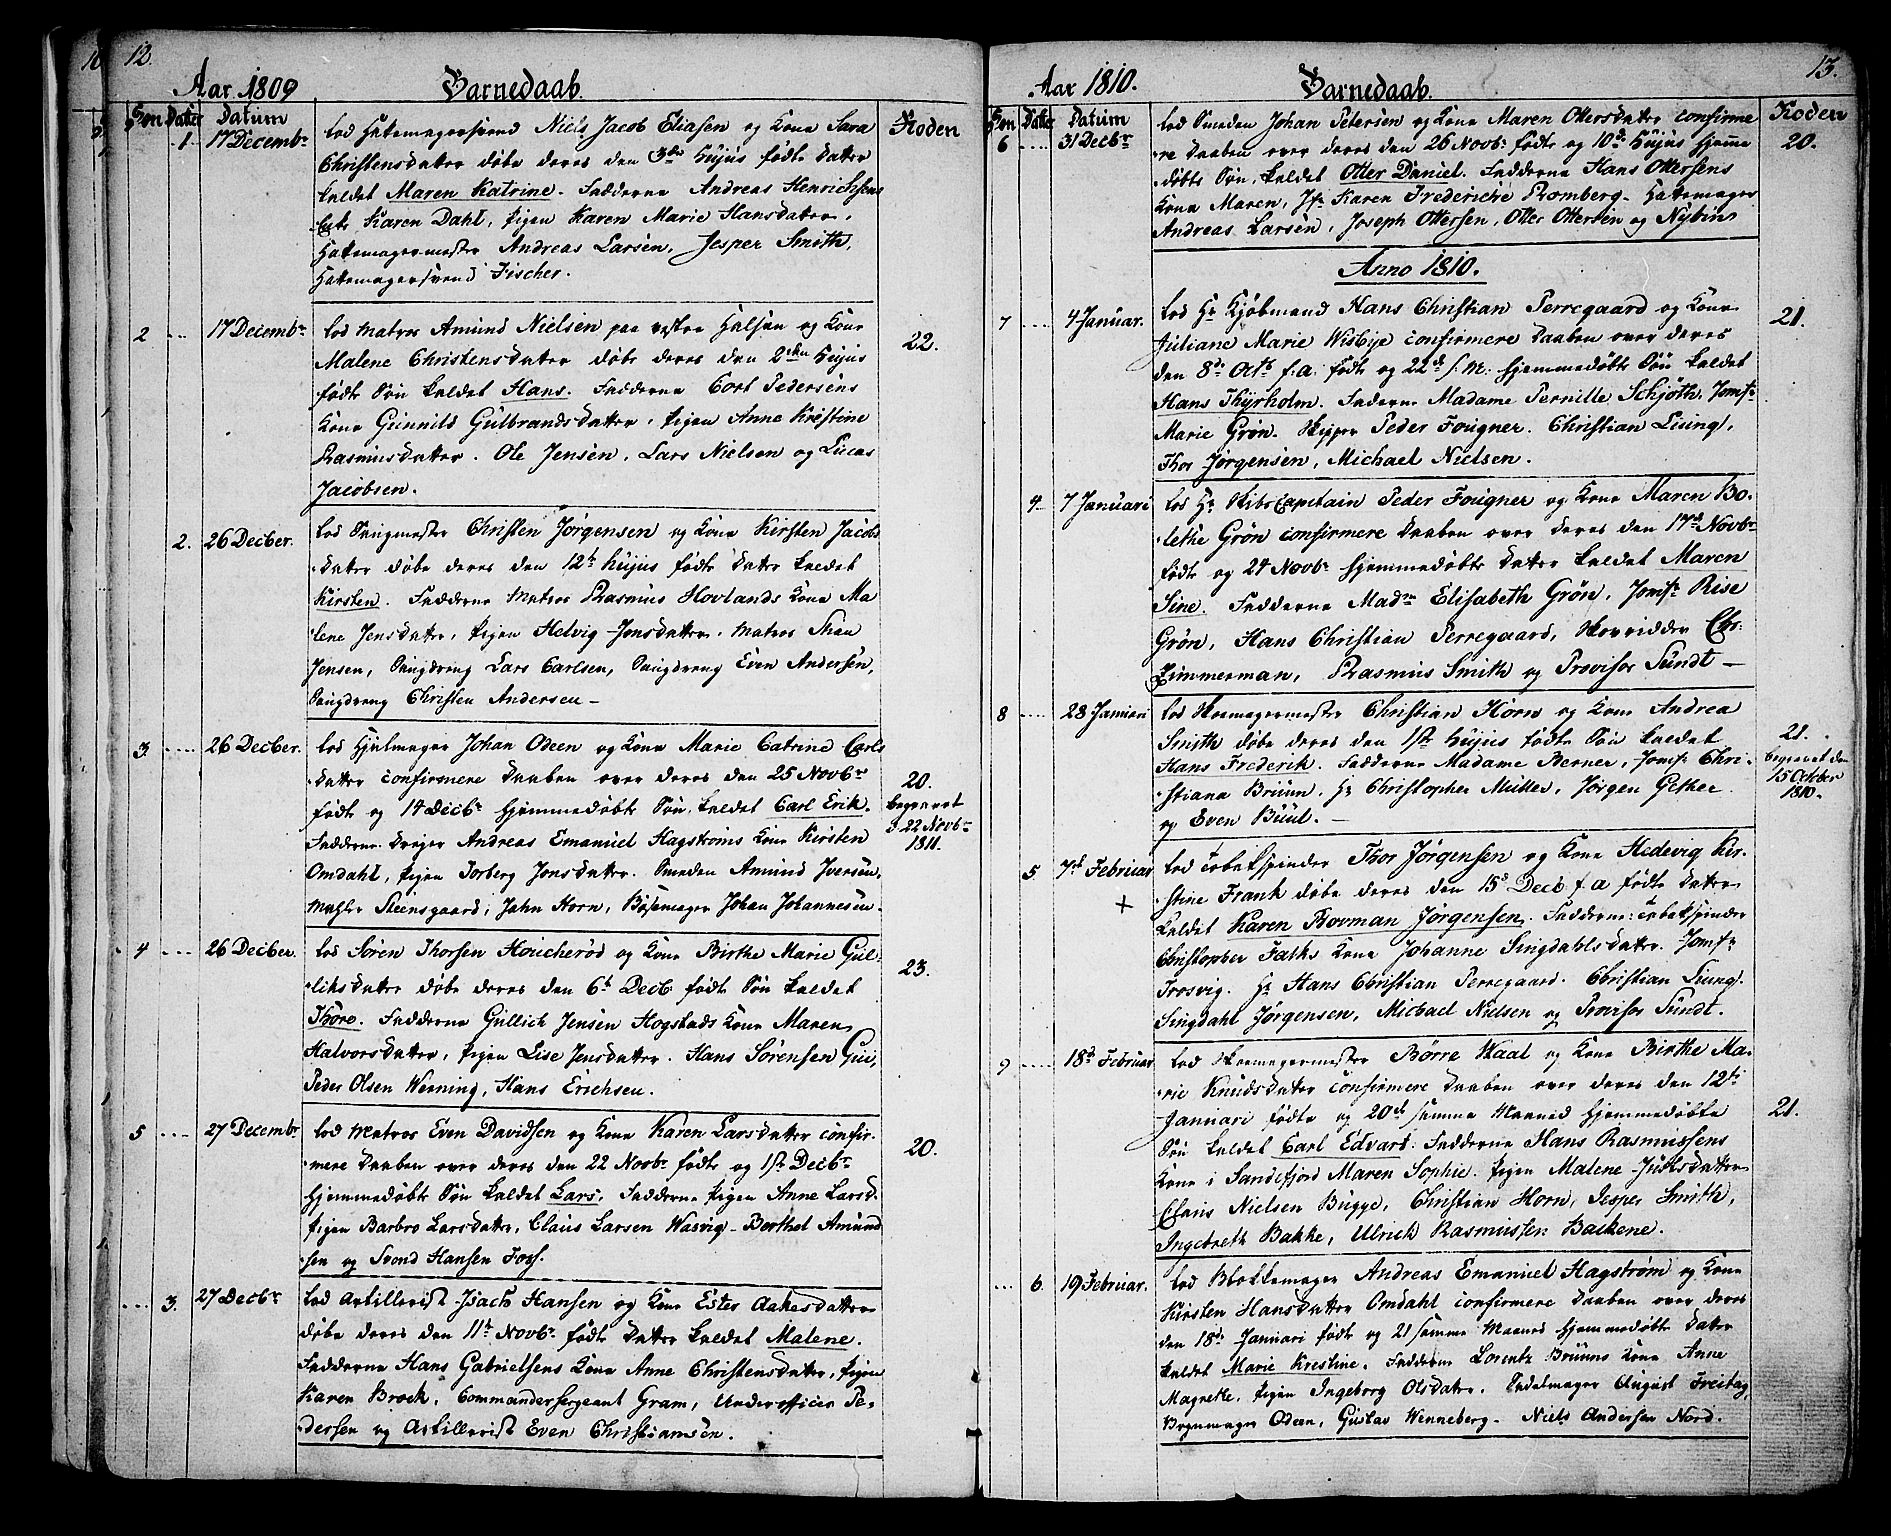 12.
Aar 1809 Barnedaab.
Søn Datter Datum Koden
1. 17 Decembr lod Hattemagersvend Niels Jacob Eliasen og Kone Sara
Christensdatter døbe deres den 3die hujus fødte Datter
kaldet Maren Katrine. Fadderne Andreas Henrichsens
Enke Karen Dahl, Pigen Karen Marie Hansdatter,
Hattemagermester Andreas Larsen, Jesper Smith,
Hattemagersvend Fischer.
2 17 Decembr lod Matros Amund Nielsen paa vestre Halsen og Kone 22.
Malene Christensdatter døbe deres den 2den hujus
fødte Søn kaldet Hans. Fadderne Cort Pedersens
Kone Gunnild Gulbrandsdatter, Pigen Anne Kirstine
Rasmusdatter. Ole Jensen, Lars Nielsen og Lucas
Jacobsen.
2. 26 Decber. lod Saugmester Christen Jørgensen og Kone Kirsten Jacobs
datter døbe deres den 12t hujus fødte Datter kaldet
Kirsten. Fadderne Matros Rasmus Hovlands Kone Ma
lene Jensdatter, Pigen Helvig Jonsdatter. Matros Than
Jensen, Saugdreng Lars Carlsen, Saugdreng Even Andersen,
Saugdreng Christen Andersen –
3. 26 Decber. lod Hjulmager Johan Odeen og Kone Marie Catrine Carls
datter confirmere Daaben over deres den 25 Novbr 20.
fødte og 14 Decbr hjemmedøbte Søn, kaldet Carl Erik. begravet
Fadderne Dreyer Andreas Emanuel Hagstroms Kone Kirsten d 22 Novbr
Omdahl, Pigen Torberg Jonsdatter. Smeden Amund Iversen, 1811.
Mahler Steensgaard, John Horn, Bøsemager Johan Johannesen
4 26 Decber. lod Søren Thorsen Houcherød og Kone Birthe Marie Gul- 23.
liksdatter døbe deres den 6t Decb fødte Søn kaldet
Thore. Fadderne Gullich Jensen Hogstads Kone Maren
Halvorsdatter, Pigen Lise Jensdatter. Hans Sørensen Gui,
Peder Olsen Werning, Hans Erichsen.
5 27 Decembr lod Matros Even Davidsen og Kone Karen Larsdatter confir- 20.
mere Daaben over deres den 22 Novbr fødte og 1ste Decbr
hjemmedøbte Søn kaldet Lars, Fadderne Pigen Anne Larsd.
Pigen Barbro Larsdatter, Claus Larsen Wasvig – Berthel Amund
sen og Svend Hansen Foss.
3. 27 Decbr lod Artillerist Isach Hansen og Kone Ester Aakesdatter
døbe deres den 11t Novbr fødte Datter kaldet Malene.
Fadderne Hans Gabrielsens Kone Anne Christensdatter, Pigen
Karen Brock, Commandersergeant Gram, Underofficer Pe-
dersen og Artillerist Even Christiansen.
13.
Aar 1810. Barnedaab.
Søn Datter Datum Koden
6 31 Decbr lod Smeden Johan Petersen og Kone Maren Ottersdatter confirme 20.
re Daaben over deres den 26 Novbr fødte og 10de hujus hjemme
døbte Søn, kaldet Otter Daniel. Fadderne Hans Ottersens
Kone Maren, Jfr Karen Frederiche Romberg. Hattemager
Andreas Larsen, Joseph Ottersen, Otter Ottersen og Nybruis
Anno 1810.
7 4 Januar. lod Hr Kjøbmand Hans Christian Perregaard og Kone 21.
Juliane Marie Wisbye confirmere Daaben over deres
den 8de Octb f. a. fødte og 22d s. M. hjemmedøbte Søn kaldet
Hans Thyrholm. Fadderne Madame Pernille Schjøth, Jomfr
Marie Grøn. Skipper Peder Fougner. Christian Liung,
Thor Jørgensen, Michael Nielsen.
4 7 Januari lod Hr Skibs Capitain Peder Fougner og Kone Maren Bo-
lethe Grøn confirmere Daaben over deres den 17d Novbr
fødte og 24 Novbr hjemmedøbte Datter kaldet Maren
Sine. Fadderne Madm Elisabeth Grøn, Jomfr Rise
Grøn, Hans Christian Perregaard, Skovridder Chr:
Zimmerman, Rasmus Smith og Provisor Sundt –
8 28 Januari lod Skomagermester Christian Horn og Kone Andrea
Smith døbe deres den 1ste hujus fødte Søn kaldet 21.
Hans Frederik. Fadderne Madame Berner, Jomfr Chri- begravet den
stiana Bruun, Hr Christopher Müller, Jørgen Gether 15 October
og Even Buul. – 1810.
5 7d Februar lod Tobakspinder Thor Jørgensen og Kone Hedevig Kir-
+ stine Frank døbe deres den 15d Decb f. a fødte Datter
kaldet Karen Bovman Jørgensen. Fadderne: Tobakspinder
Christopher Falks Kone Johanne Singdahlsdatter. Jomfr
Trosvig. Hr Hans Christian Perregaard. Christian Liung.
Singdahl Jørgensen, Michael Nielsen og Provisor Sundt.
9 18d Februar lod Skomagermester Børre Waal og Kone Birthe Ma-
rie Knudsdatter confirmere Daaben over deres den 12te
Januari fødte og 20d samme Maaned hjemmedøbte 21.
Søn kaldet Carl Edvart. Fadderne Hans Rasmussens
Kone i Sandefjord Maren Sophie. Pigen Malene Juulsdatter
Claus Nielsen Bugge, Christian Horn, Jesper Smith,
Ingebreth Bakke, Ulrich Rasmussen Backene.
6. 19 Februar. lod Blokkemager Andreas Emanuel Hagstrøm og Kone
Kirsten Hansdatter Omdahl confirmere Daaben over deres
den 18de Januari fødte og 21 samme Maaned hjemmedøbte Datter
kaldet Marie Kirstine. Fadderne Lorentz Bruuns Kone Anne
Magrethe, Pigen Ingeborg Olsdatter. Sadelmager August Freitag,
Odeen, Gustav Wenneberg – Niels Andersen Nord.